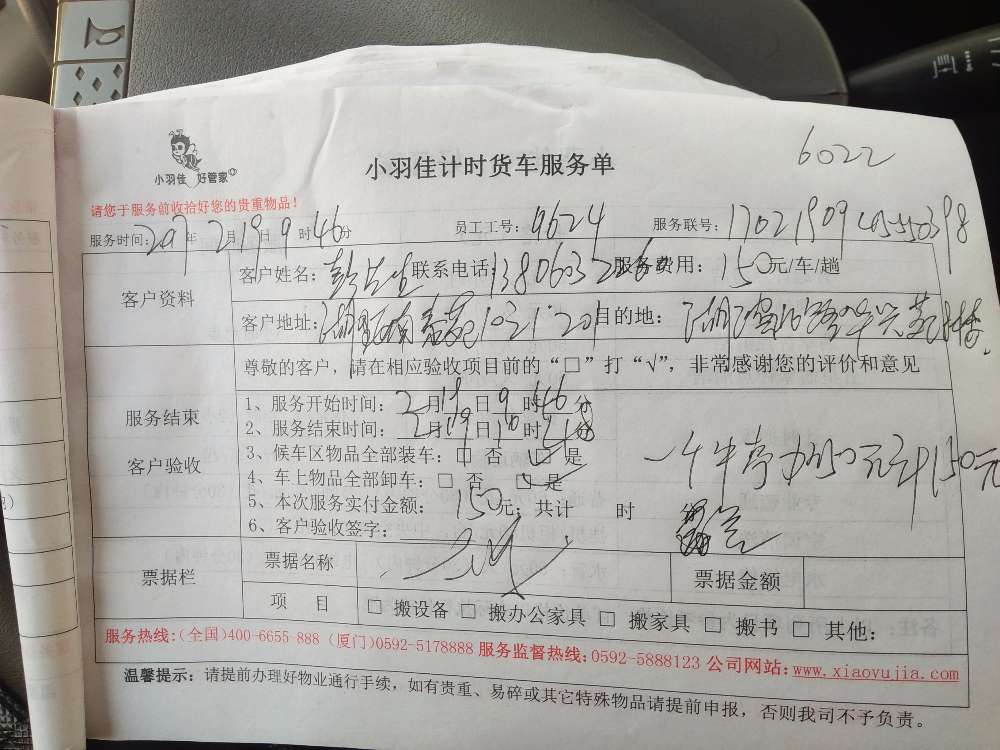 6022
小羽佳 好管家
小羽佳计时货车服务单
请您于服务前收拾好您的贵重物品!
服务时间: 2017年2月19日9时46分 员工工号: 9624 服务联号: 17021909
客户资料
客户姓名: 彭先生 联系电话: 服务费用: 150元/车/趟
客户地址: 目的地:
尊敬的客户,请在相应验收项目前的“□”打“√”,非常感谢您的评价和意见
服务结束
客户验收
1、服务开始时间: 2月19日9时46分
2、服务结束时间: 2月19日时分
3、候车区物品全部装车: □ 否 □ 是
4、车上物品全部卸车: □ 否 □ 是
5、本次服务实付金额: 150元; 共计 时
6、客户验收签字:
150元
票据栏
票据名称 票据金额
项 目 □ 搬设备 □ 搬办公家具 □ 搬家具 □ 搬书 □ 其他:
服务热线:(全国)400-6655-888 (厦门)0592-5178888 服务监督热线:0592-5888123 公司网站:www.xiaoyujia.com
温馨提示: 请提前办理好物业通行手续,如有贵重、易碎或其它特殊物品请提前申报,否则我司不予负责。